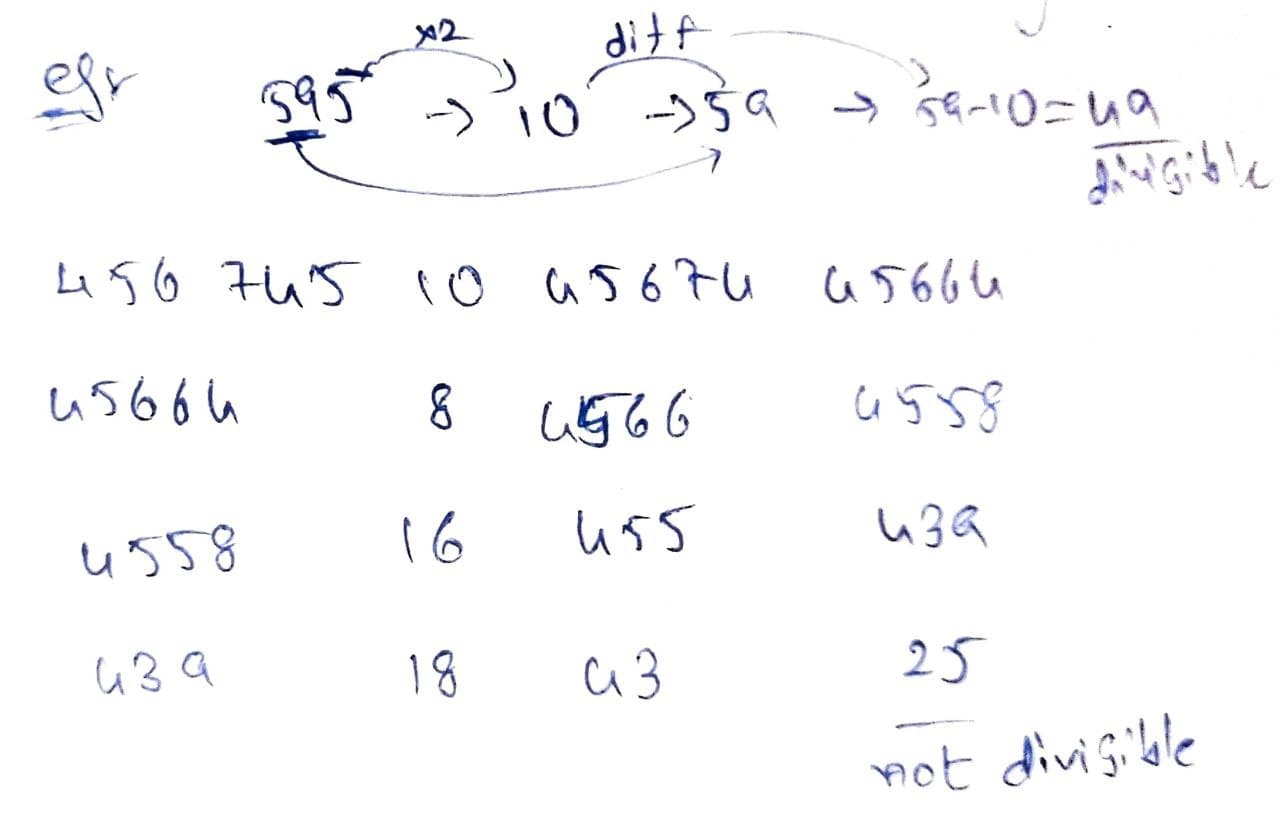 ×2 diff
eg:- 595 → 10 → 59 → 59-10=49
divisible
456 745 10 45674 45664
45664 8 4566 4558
4558 16 455 439
439 18 43 25
not divisible